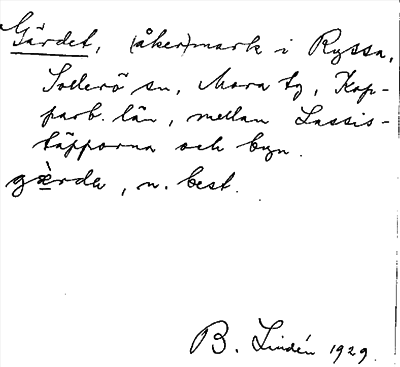 Gärdet, (åker)mark i Ryssa,
Sollerö sn, Mora tg, Kop-
parb. län, mellan Lassis-
täpporna och byn.
gærda, n. best.
B. Lindén 1929.